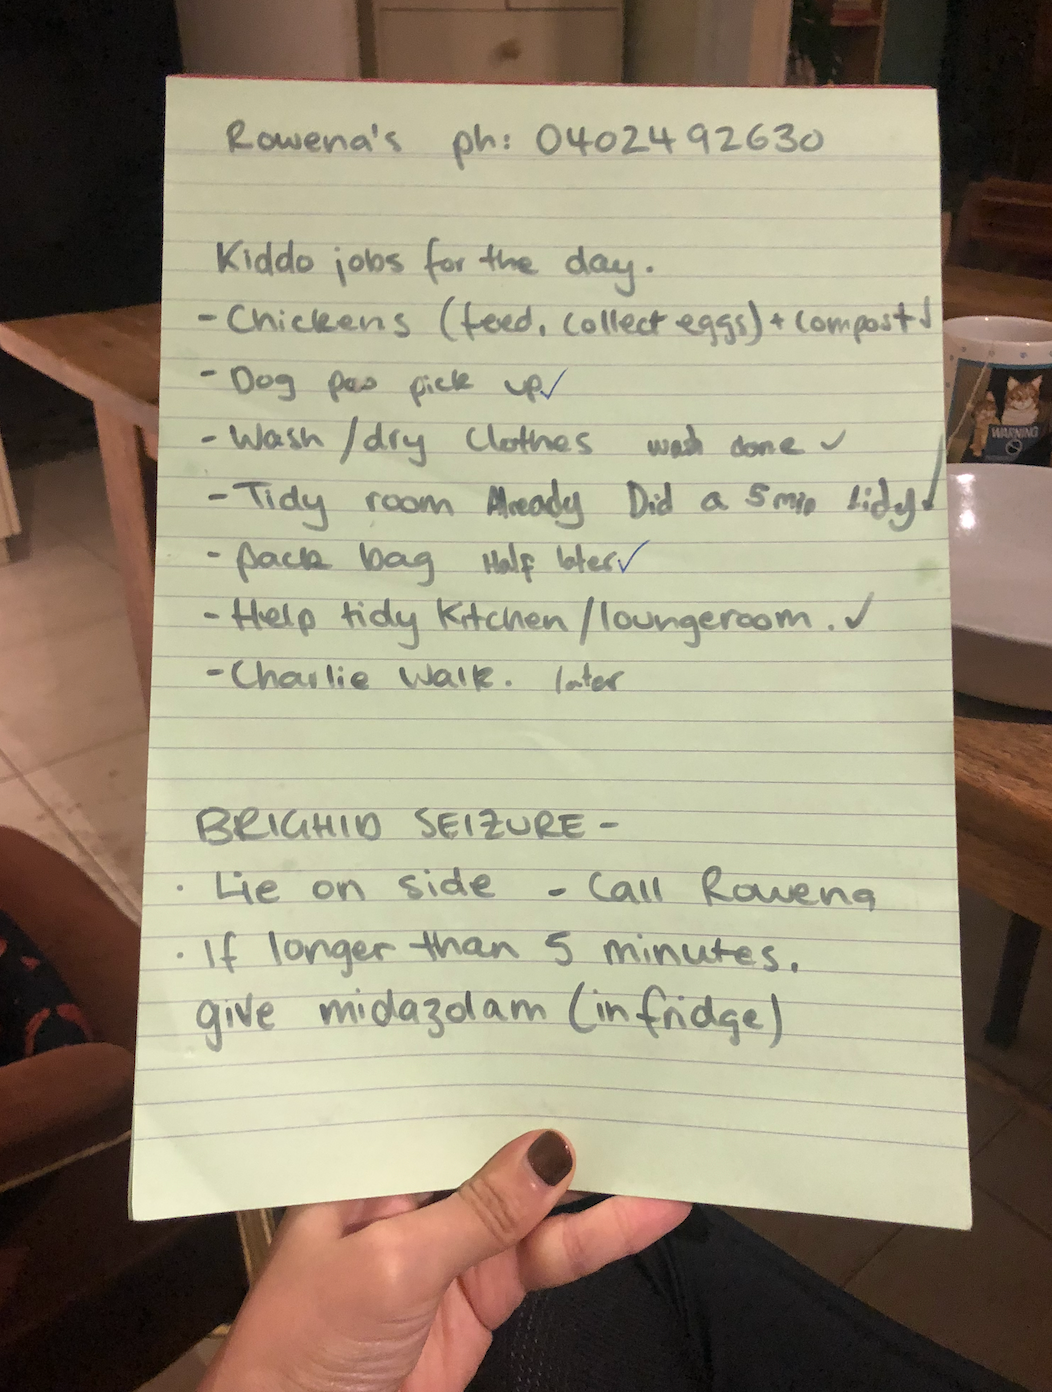 Rowena's ph: 0402492630
Kiddo jobs for the day.
- Chickens (feed, collect eggs) + compost ✓
- Dog poo pick up ✓
- Wash/dry clothes wash done ✓
- Tidy room Already Did a 5 min tidy ✓
- pack bag Half later ✓
- Help tidy Kitchen/loungeroom. ✓
- Charlie walk. later
BRIGHID SEIZURE -
· Lie on side - Call Rowena
· If longer than 5 minutes,
give midazolam (in fridge)
WARNING